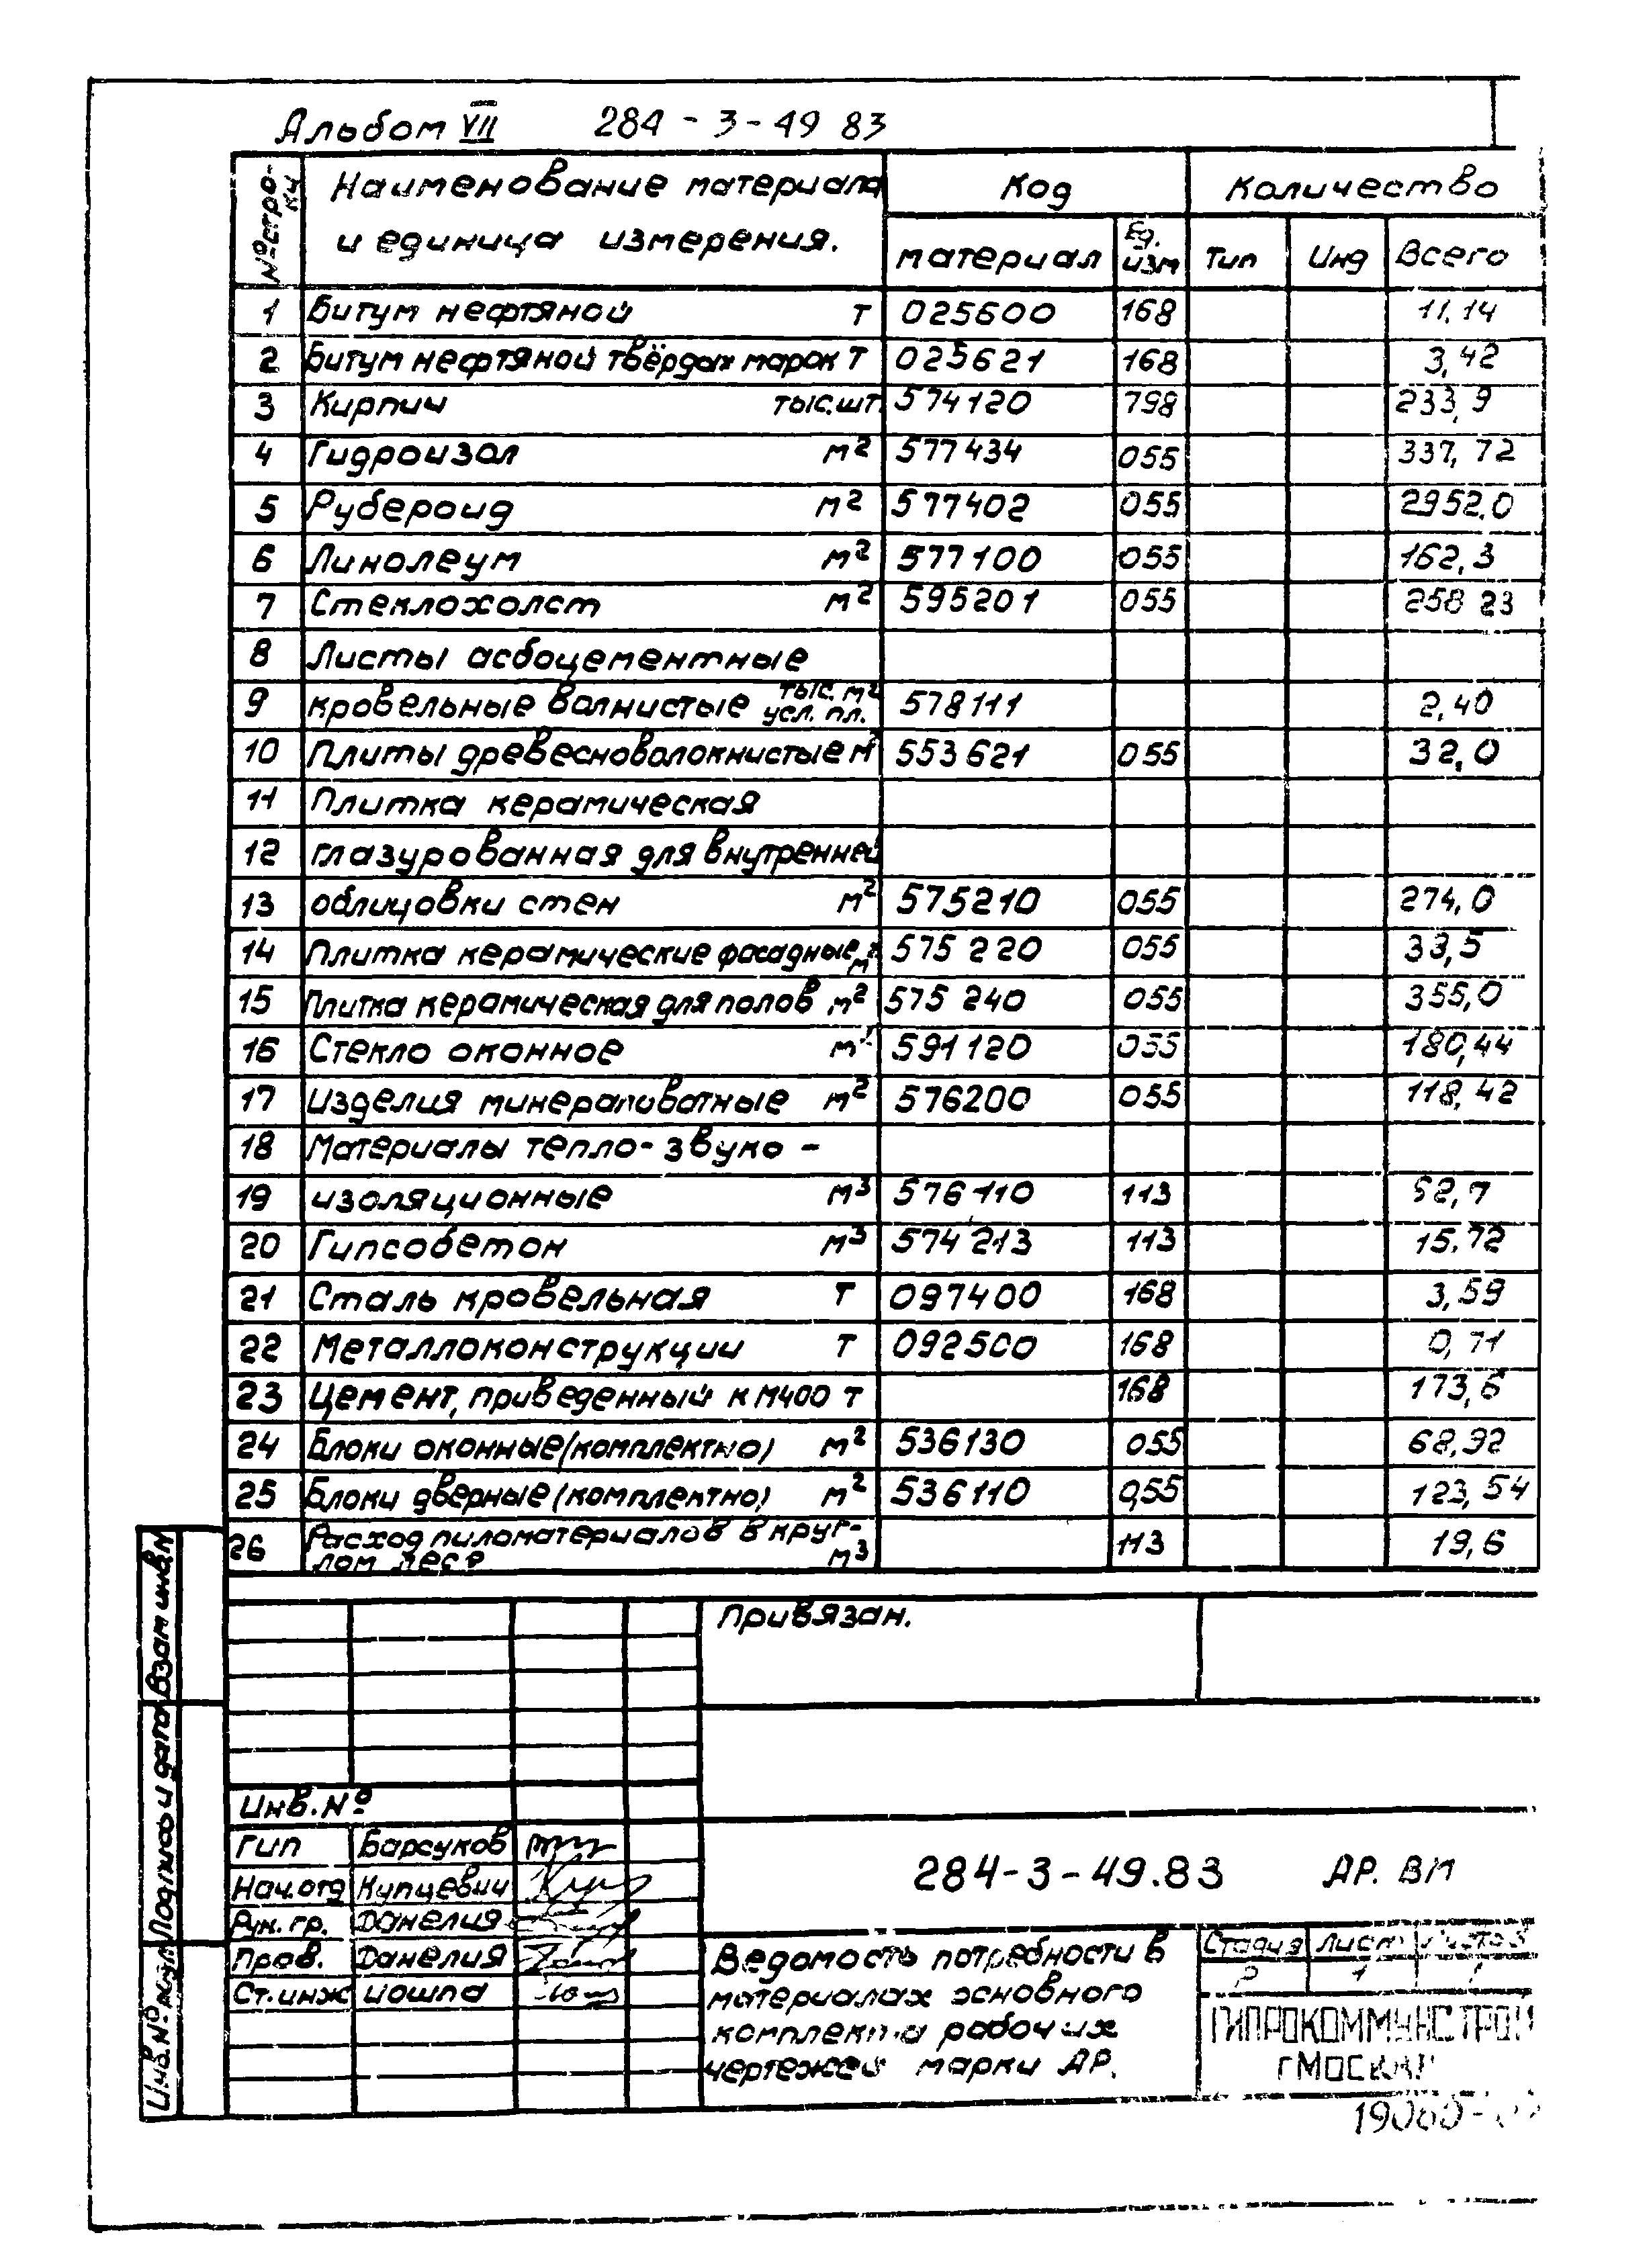 Альбом VII 284-3-49 83
№ строки Наименование материала и единица измерения. Код Количество
материал Ед. изм Тип Инд Всего
1 Битум нефтяной т 025600 168 11,14
2 Битум нефтяной твёрдых марок т 025621 168 3,42
3 Кирпич тыс.шт. 574120 798 233,9
4 Гидроизол м2 577434 055 337,72
5 Рубероид м2 577402 055 2952,0
6 Линолеум м2 577100 055 162,3
7 Стеклохолст м2 595201 055 258 23
8 Листы асбоцементные
9 кровельные волнистые тыс. м2 усл. пл. 578111 2,40
10 Плиты древесноволокнистые м2 553621 055 32,0
11 Плитка керамическая
12 глазурованная для внутренней
13 облицовки стен м2 575210 055 274,0
14 Плитка керамические фасадные м2 575 220 055 33,5
15 Плитка керамическая для полов м2 575 240 055 355,0
16 Стекло оконное м2 591120 055 180,44
17 Изделия минераловатные м2 576200 055 118,42
18 Материалы тепло- звуко -
19 изоляционные м3 576110 113 52,7
20 Гипсобетон м3 574213 113 15,72
21 Сталь кровельная т 097400 168 3,59
22 Металлоконструкции т 092500 168 0,71
23 Цемент, приведенный к М400 т 168 173,6
24 Блоки оконные (комплектно) м2 536130 055 68,92
25 Блоки дверные (комплектно) м2 536110 055 123,54
26 Расход пиломатериалов в круг-
лом лесе м3 113 19,6
Привязан.
Инв.№
ГИП Барсуков
Нач.отд Купцевич
Рук. гр. Данелия
Пров. Данелия
Ст.инж Иошпа
284-3-49.83 АР. ВМ
Ведомость потребности в
материалах основного
комплекта рабочих
чертежей марки АР.
Стадия Лист Листов
Р 1 1
ГИПРОКОММУНСТРОЙ
г Москва
Взам инв.№
Подпись и дата
Инв.№ подл